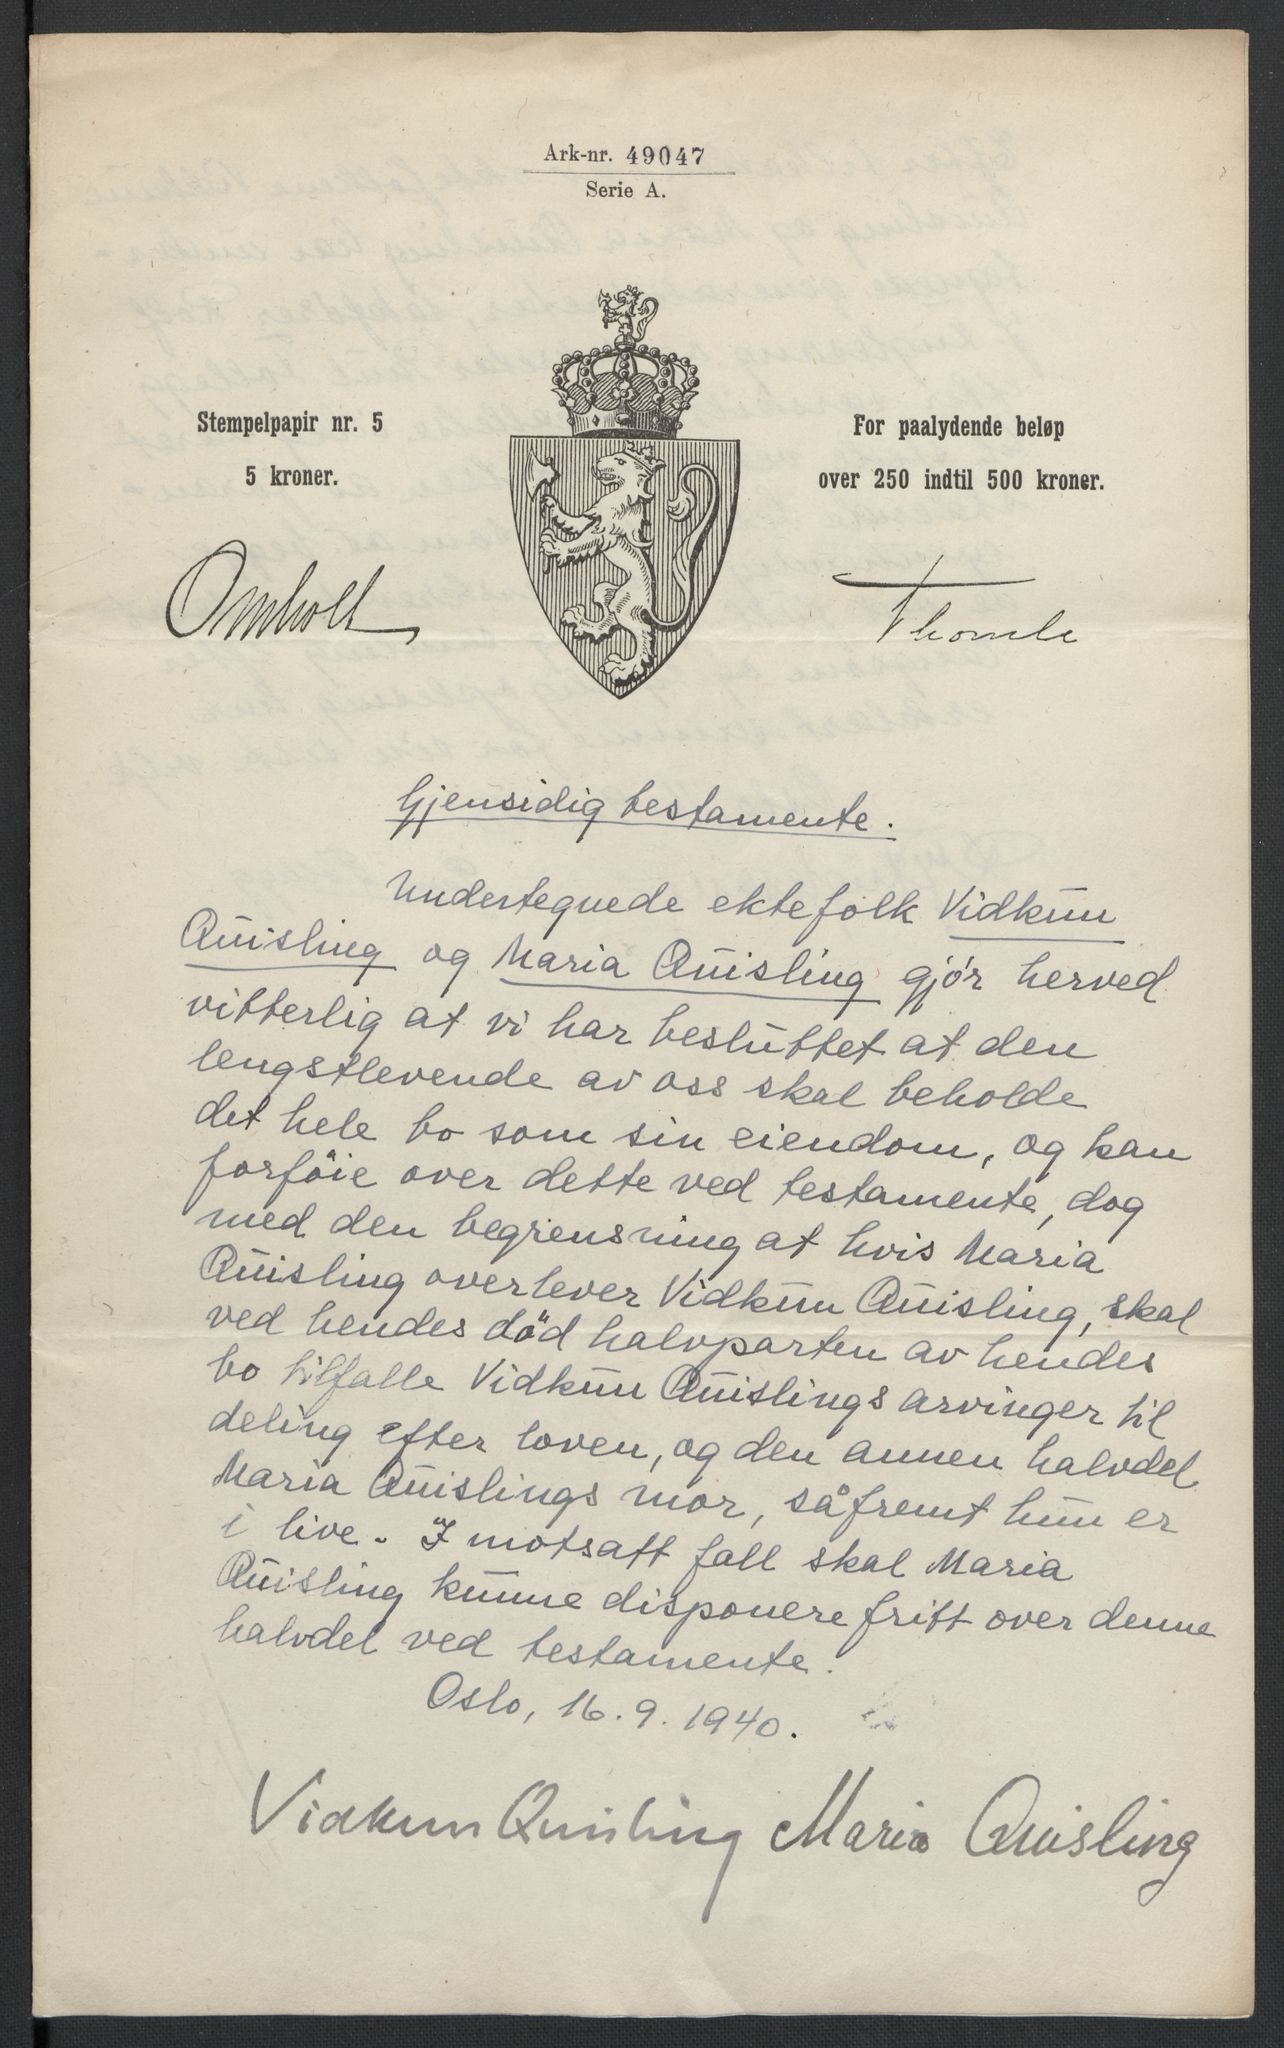 Ark-nr. 49047
Serie A.
Stempelpapir nr. 5
5 kroner.
For paalydende beløp
over 250 indtil 500 kroner.
Omholt
Thomle
Gjensidig testamente.
Undertegnede ektefolk Vidkun
Quisling og Maria Quisling gjør herved
vitterlig at vi har besluttet at den
lengstlevende av oss skal beholde
det hele bo som sin eiendom, og kan
forføie over dette ved testamente, dog
med den begrensning at hvis Maria
Quisling overlever Vidkun Quisling, skal
ved hendes död halvparten av hendes
bo tilfalle Vidkun Quislings arvinger til
deling efter loven, og den annen halvdel
Maria Quislings mor, såfremt hun er
i live. I motsatt fall skal Maria
Quisling kunne disponere fritt over denne
halvdel ved testamente.
Oslo, 16.9.1940.
Vidkun Quisling Maria Quisling